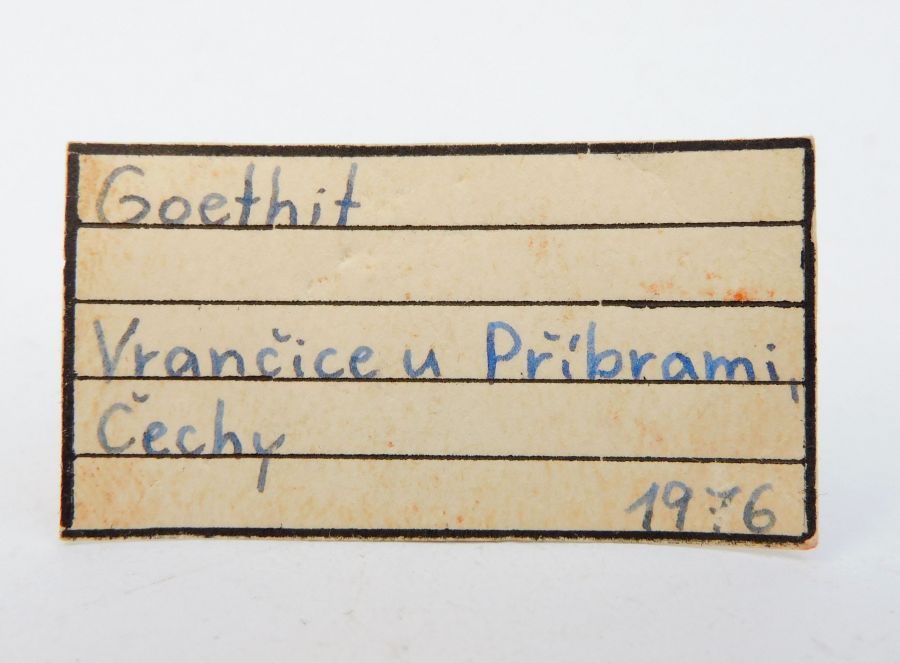 Goethit
Vrančice u Příbrami,
Čechy
1976